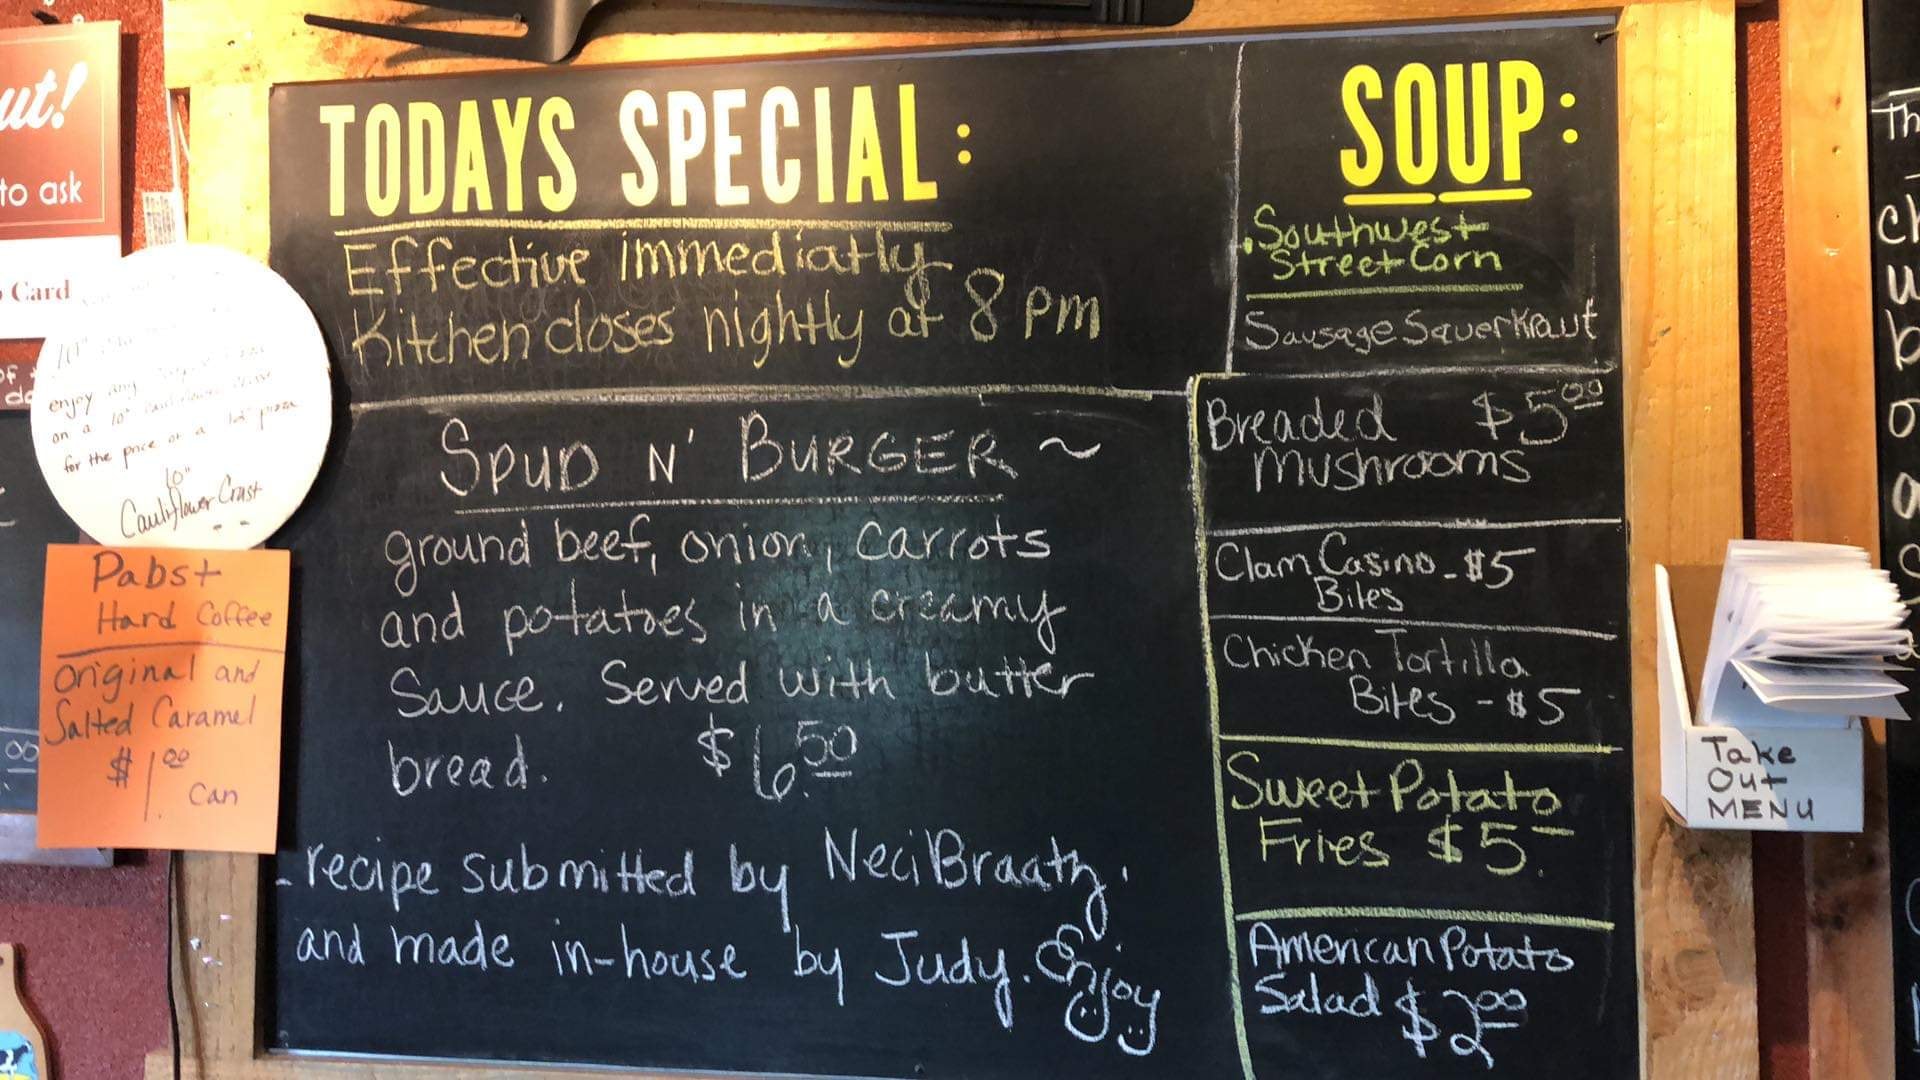 ut!
to ask
Card
enjoy any
on a 10"
for the price of a 12" pizza
10"
Cauliflower Crust
Pabst
Hard Coffee
Original and
Salted Caramel
$1.00
Can
TODAYS SPECIAL:
Effective immediatly
Kitchen closes nightly at 8 pm
SPUD N' BURGER ~
ground beef, onion, carrots
and potatoes in a creamy
Sauce. Served with butter
bread. $6.50
- recipe submitted by Neci Braatz.
and made in-house by Judy. Enjoy
SOUP:
. Southwest
Street Corn
Sausage Sauerkraut
Breaded $5.00
Mushrooms
Clam Casino - $5
Bites
Chicken Tortilla
Bites - $5
Sweet Potato
Fries $5.-
American Potato
Salad $2.00
Take
Out
MENU
Th